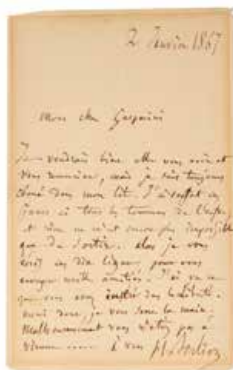 2 Janvier 1867
Mon cher Gasperini
Je voudrais bien aller vous voir et
vous remercier, mais je suis toujours
cloué dans mon lit. J'ai
tous les tourments de l'enfer,
et rien ne m'est encore plus impossible
que de sortir. alors je vous
écris ces dix lignes pour vous
envoyer mille amitiés. J'ai vu ce
que vous avez
donc, je vous serre la main.
Malheureusement vous n'étiez pas à
Vienne ..... à vous H. Berlioz